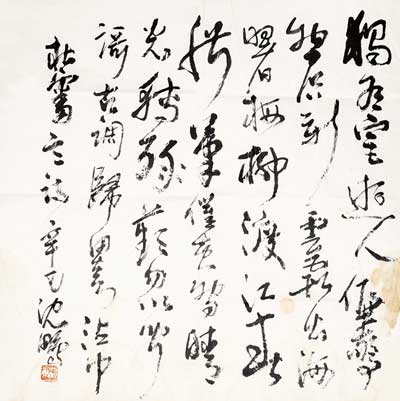 獨有宦遊人偏驚
物候新雲霞出海
曙梅柳渡江春
淑氣催黃鳥晴
光轉綠蘋忽聞
謌古調歸思欲沾巾
杜審言詩辛巳沈鵬